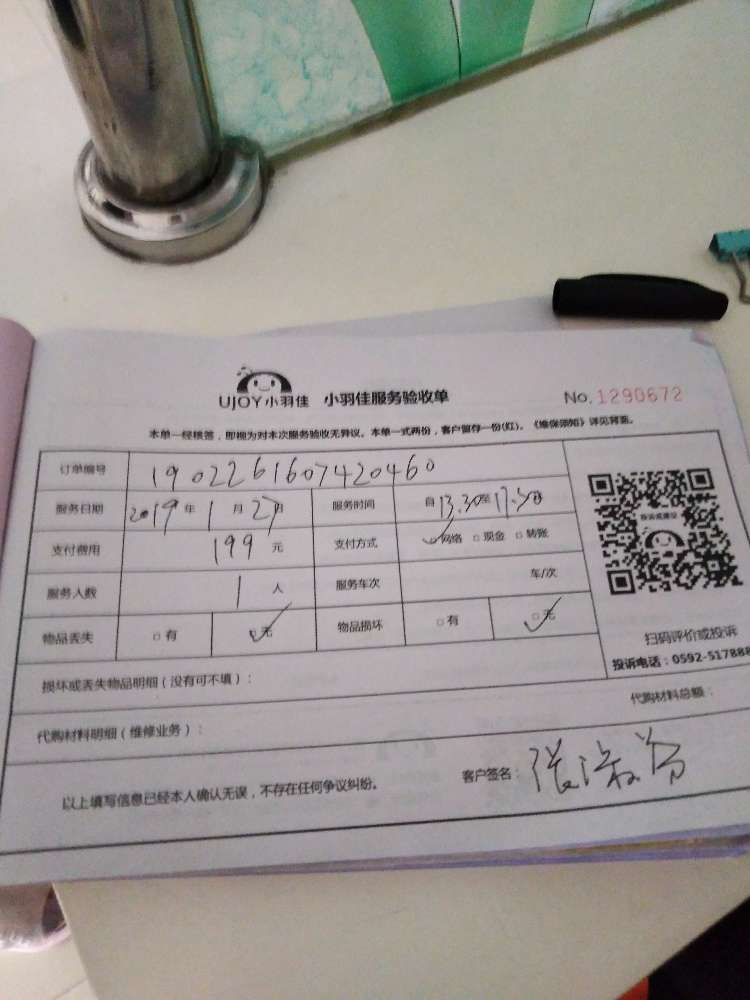 UJOY小羽佳 小羽佳服务验收单 No.1290672
本单一经核签，即视为对本次服务验收无异议。本单一式两份，客户留存一份(红)。《维保须知》详见背面。
订单编号 1902261607420460
服务日期 2019年1月27日 服务时间 自13.30至17.30
支付费用 199元 支付方式 网络 现金 转账
服务人数 1人 服务车次 车/次
物品丢失 有 无 物品损坏 有 无
投诉或建议
扫码评价或投诉
投诉电话：0592-517888
损坏或丢失物品明细（没有可不填）：
代购材料明细（维修业务）： 代购材料总额：
以上填写信息已经本人确认无误，不存在任何争议纠纷。 客户签名：张淑芳